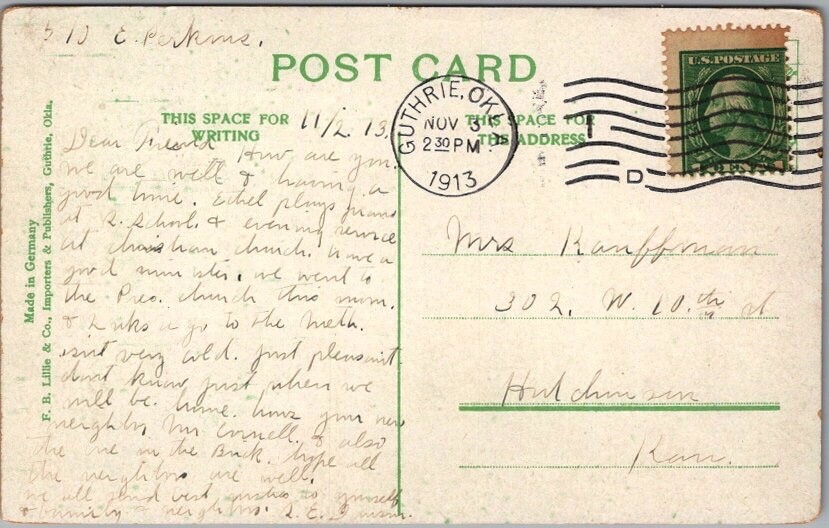 510 E. Perkins.
POST CARD
THIS SPACE FOR
WRITING
11/2 13.
THIS SPACE FOR
THE ADDRESS
GUTHRIE, OKLA.
NOV 3
2 30 PM
1913
D
U.S. POSTAGE
Dear Friend How are you.
we are well & having a
good time. Ethel plays piano
at S. School. & evening service
at christian church. have a
good minister. we went to
the Pres. church this morn.
go to the Meth.
isnt very cold. just pleasant
dont know just when we
will be home. how your new
neighbor Mr Cornell. & also
the one in the Back. hope all
the neighbors are well.
we all send best wishes to yourself
& family & neighbors.
Mrs Kauffman
302. W. 10.th st
Hutchinson
Kan.
Made in Germany
F. B. Lillie & Co., Importers & Publishers, Guthrie, Okla.